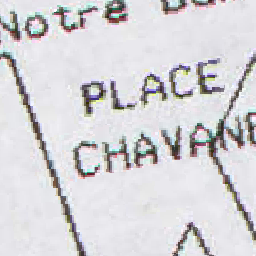 Notre
PLACE
CHAVANE